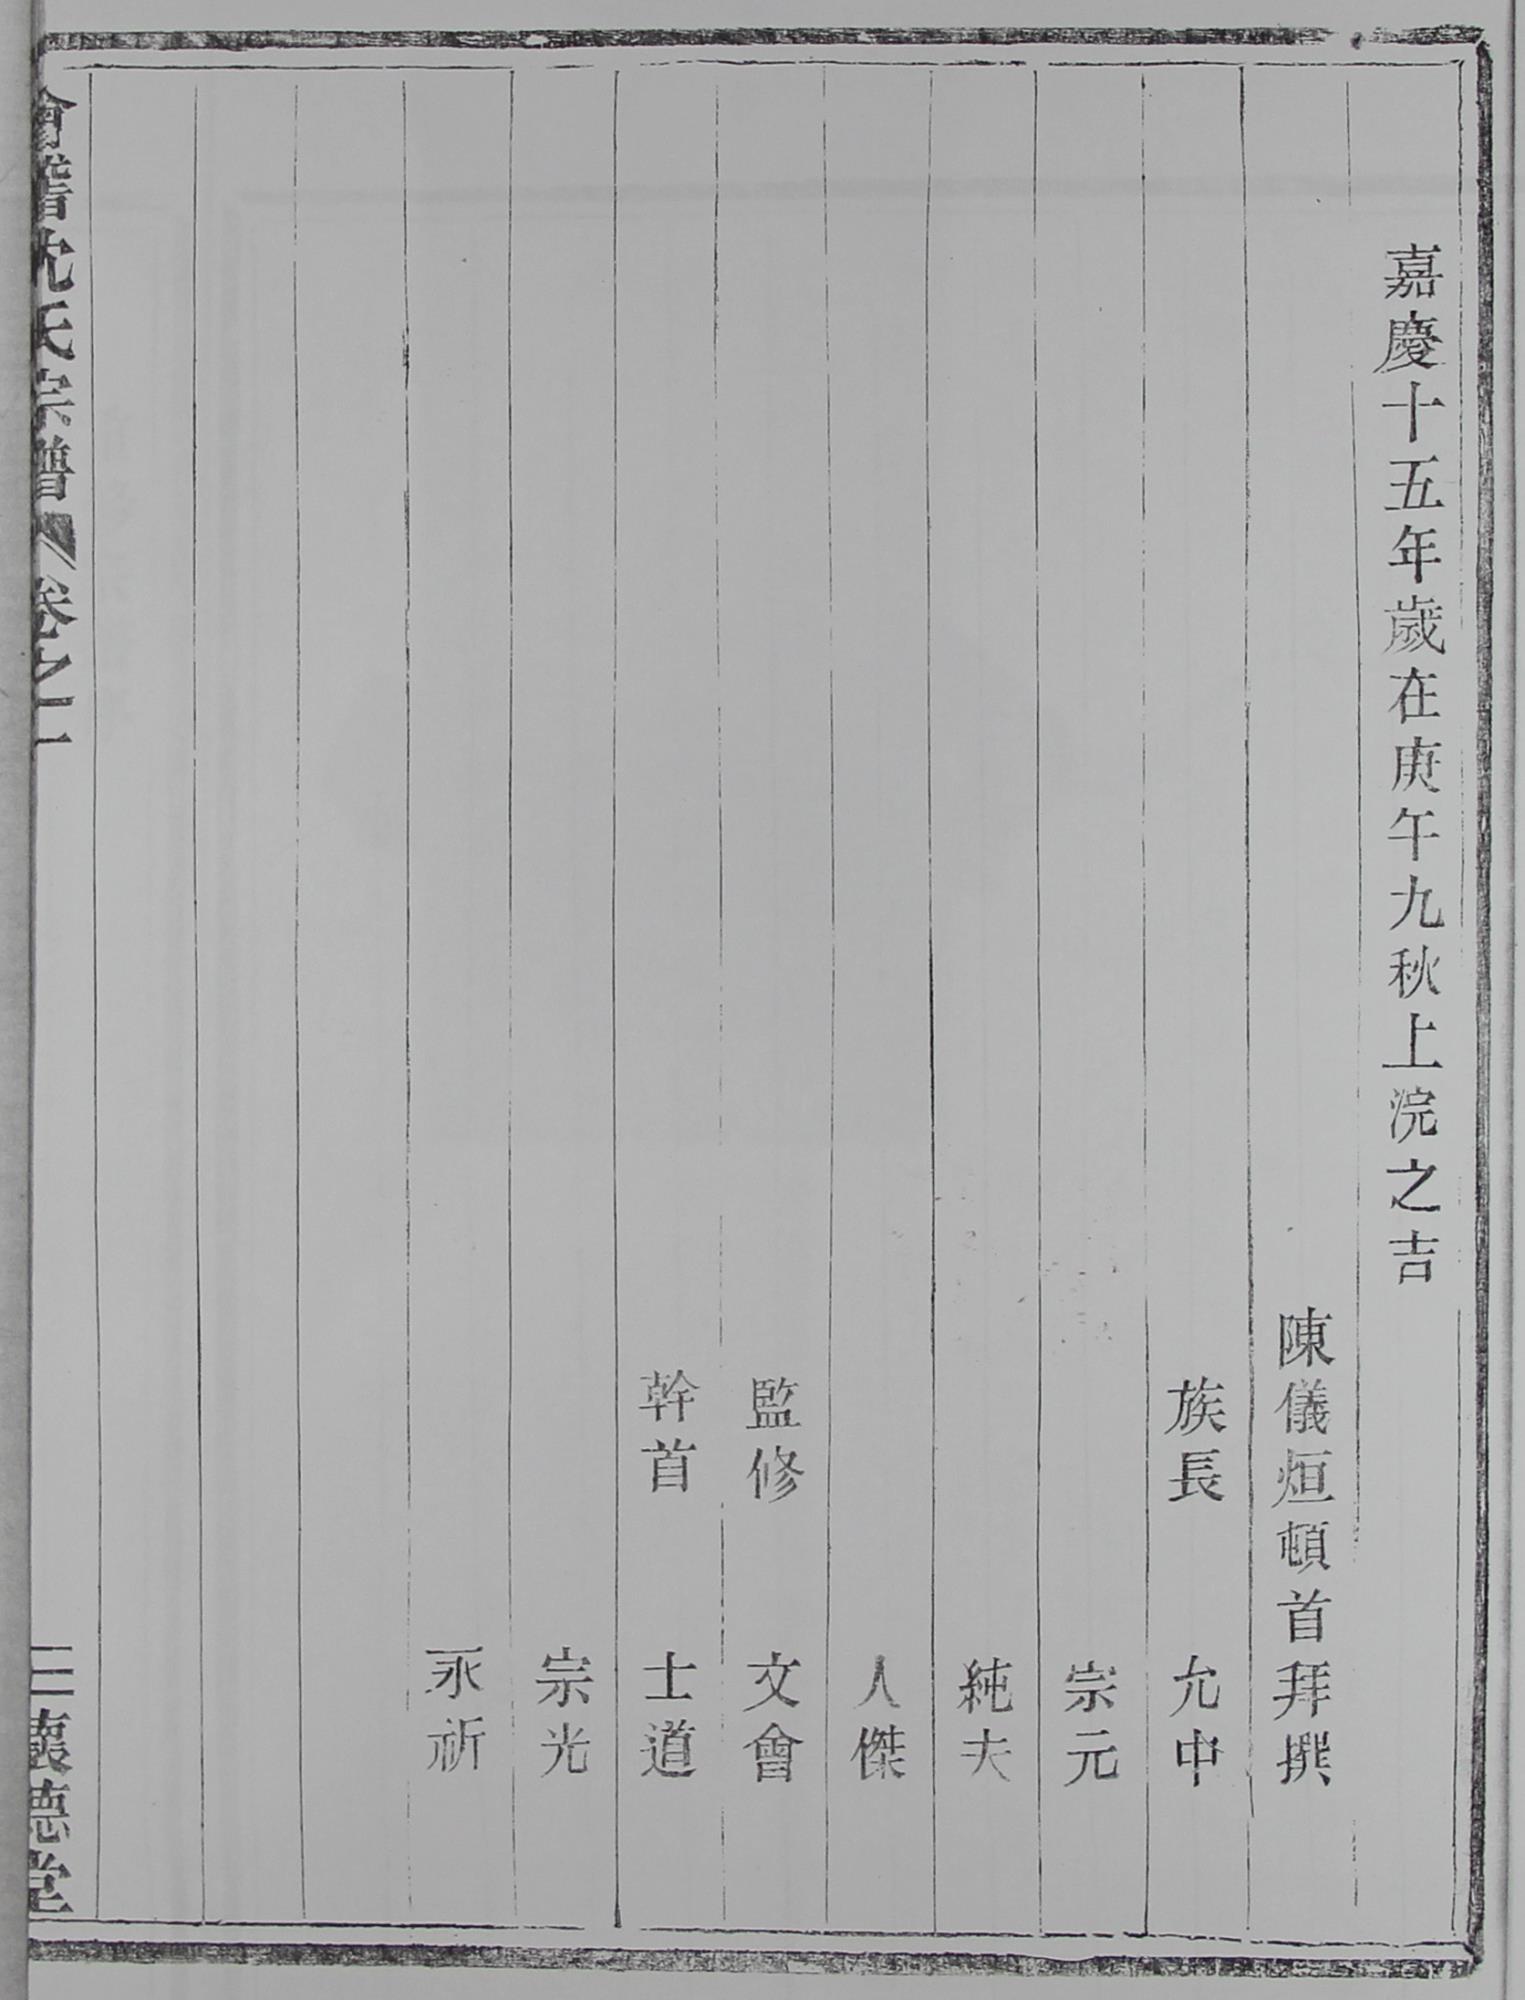 嘉慶十五年歲在庚午九秋上浣之吉
陳儀烜頓首拜撰
族長　允中
宗元
純夫
人傑
監修　文會
幹首　士道
宗光
永祈
會稽沈氏宗譜　卷之一　三　懷德堂